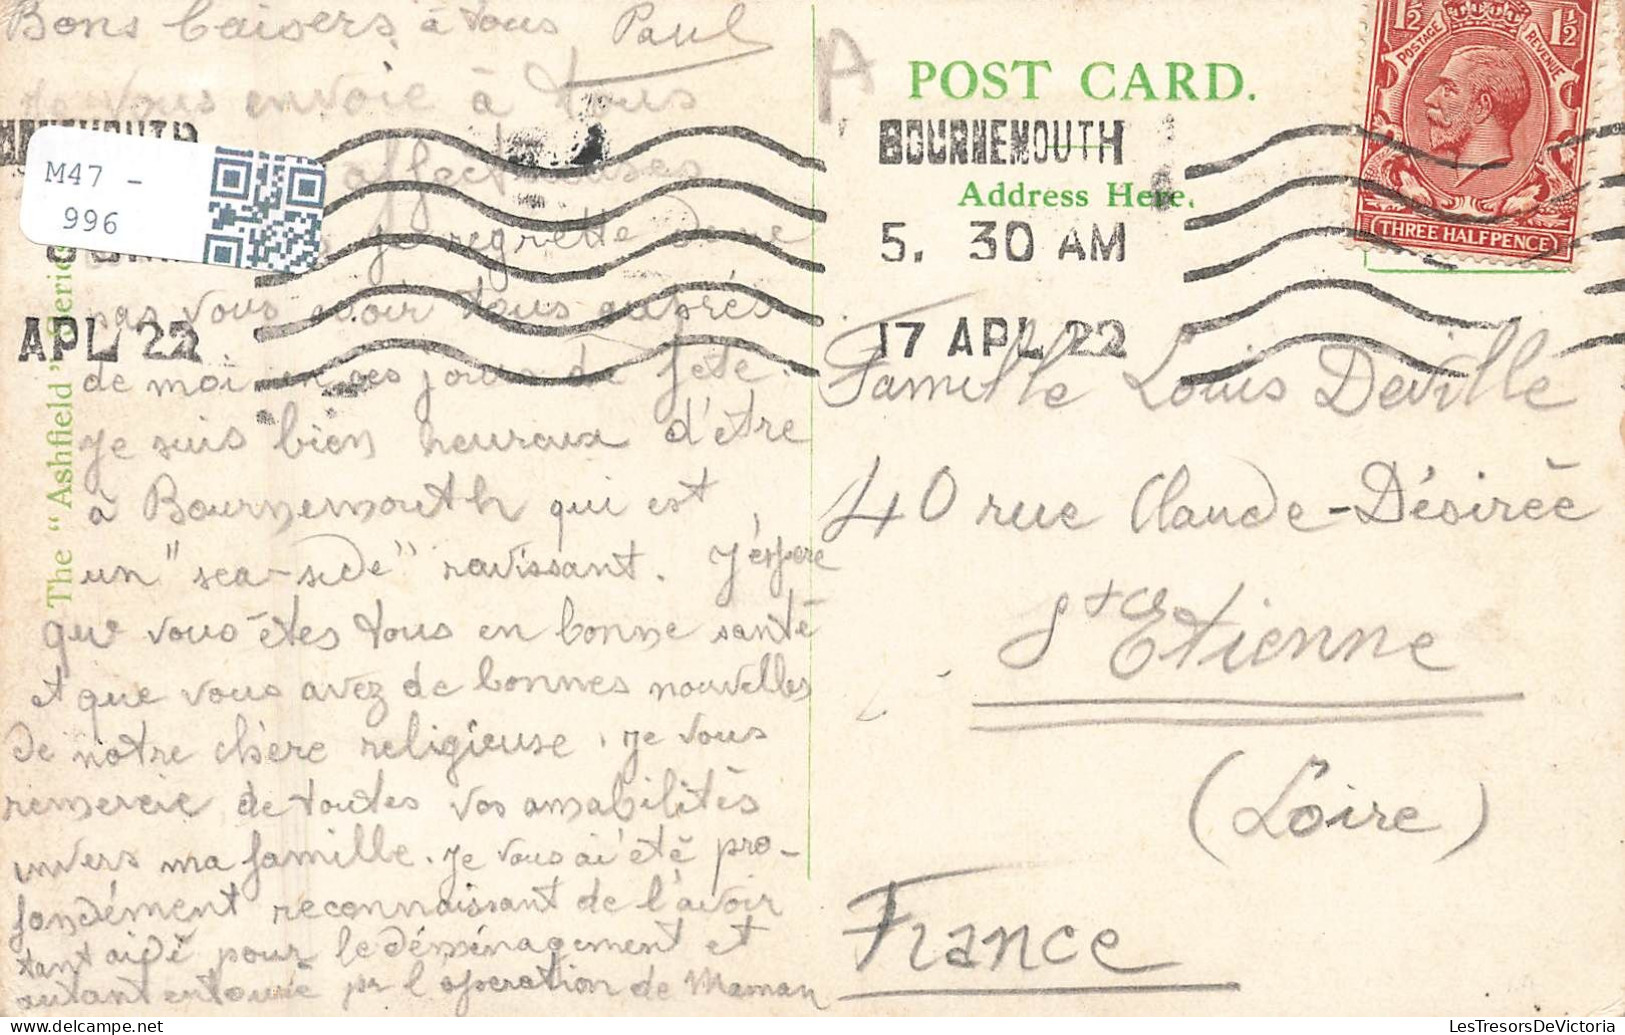 Bons baisers à tous Paul
Je vous envoie à tous
affectueuses
je regrette de ne
pas vous avoir tous auprès
de moi en ces jours de fête.
Je suis bien heureux d'être
à Bournemouth qui est
un "sea-side" ravissant. J'espère
que vous êtes tous en bonne santé
et que vous avez de bonnes nouvelles
de notre chère religieuse. Je vous
remercie de toutes vos amabilités
envers ma famille. Je vous ai été pro-
fondément reconnaissant de l'avoir
tant aidé pour le déménagement et
autant entouré pr l'opération de Maman
M47 -
996
APL 22
The "Ashfield" Series
A
POST CARD.
BOURNEMOUTH
Address Here.
5. 30 AM
17 APL 22
1½ 1½
POSTAGE REVENUE
THREE HALFPENCE
Famille Louis Deville
40 rue Claude-Désirée
St Etienne
(Loire)
France
LesTresorsDeVictoria